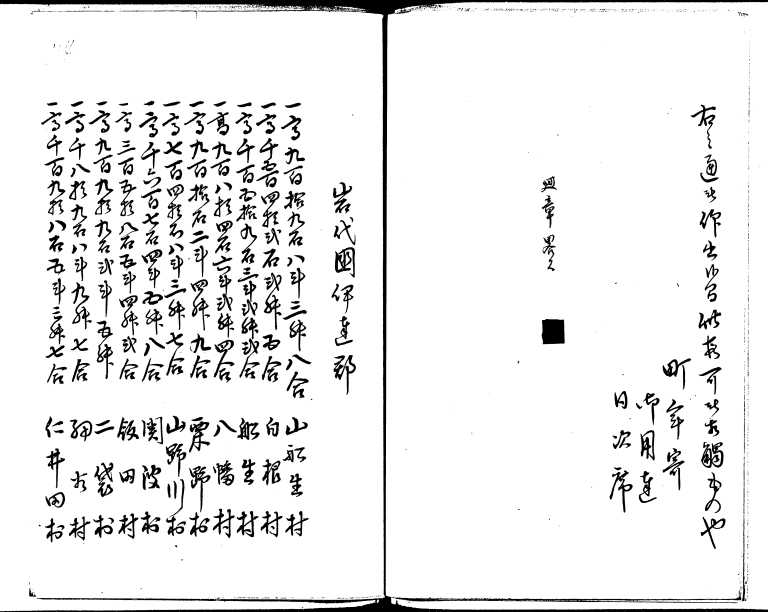 右之通被仰出候間此旨可被相觸もの也
町年寄
御用達
日次席
典章畧之
岩代國伊達郡
一高九百拾九石八斗三舛八合 山舩生村
一高千五百四拾弐石弐舛五合 白根村
一高千百五拾九石三斗弐舛弐合 舩生村
一高九百八拾四石六斗弐舛四合 八幡村
一高九百拾石二斗四舛九合 粟野村
一高七百四拾石八斗三舛七合 山野川村
一高千六百七石四斗五舛八合 関波村
一高三百五拾八石五斗四舛弐合 飯田村
一高九百九拾九石弐斗五舛 二袋村
一高千八拾九石八斗九舛七合 細谷村
一高千百九拾八石五斗三舛七合 仁井田村